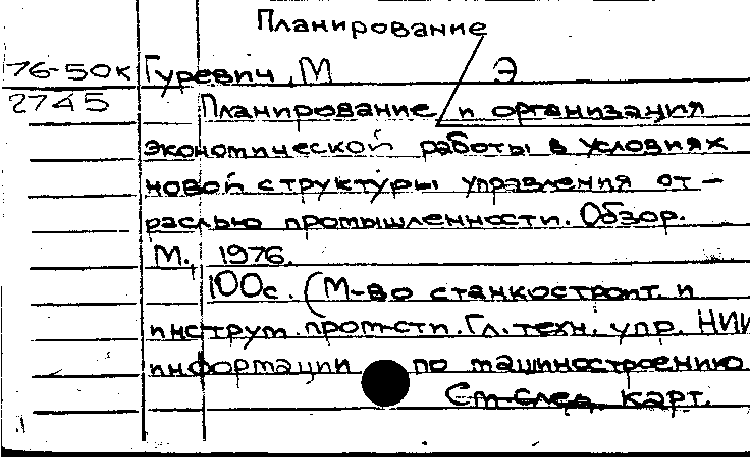 Планирование
76-50к Гуревич, М Э
2745 Планирование и организация
экономической работы в условиях
новой структуры управления от-
раслью промышленности. Обзор.
М., 1976.
100с. (М-во станкостроит. и
инструм. пром-сти. Гл. техн. упр. НИИ
информации по машиностроению
См. след. карт.